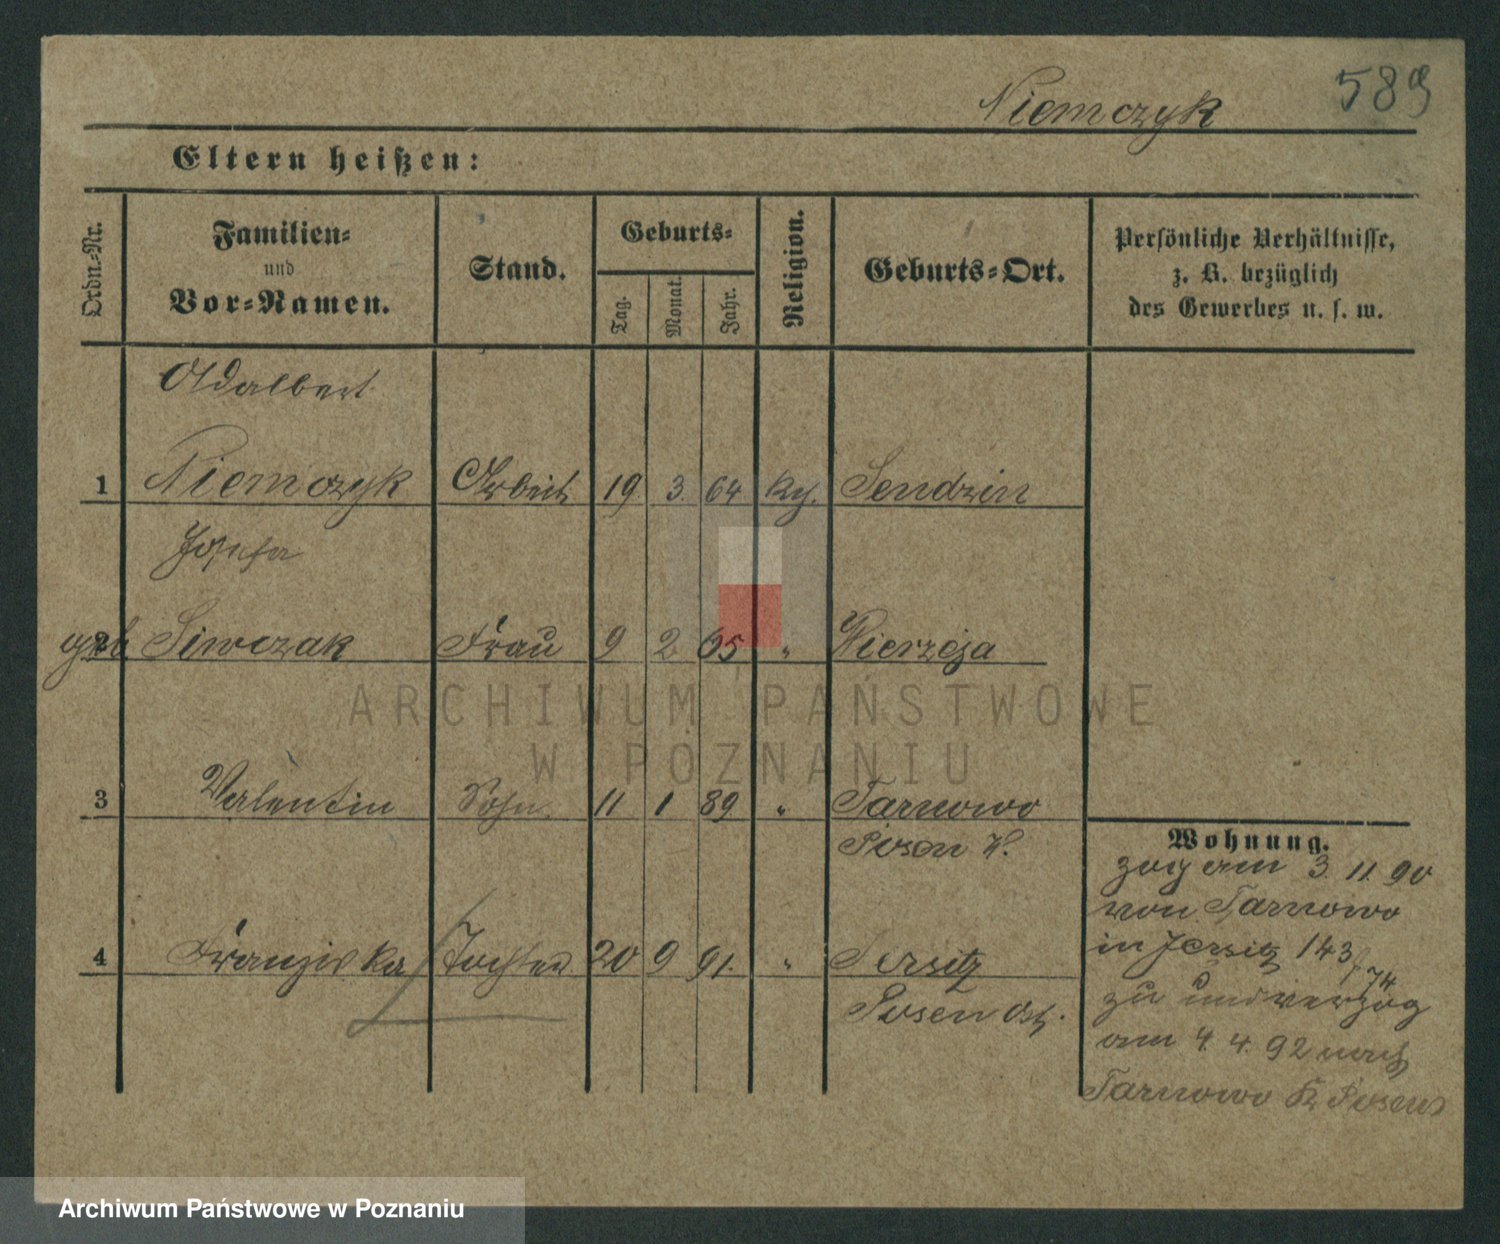 Niemczyk 589
Eltern heißen:
Ordn.-Nr.
Familien-
und
Vor-Namen.
Stand.
Geburts-
Tag.
Monat.
Jahr.
Religion.
Geburts-Ort.
Persönliche Verhältnisse,
z. B. bezüglich
des Gewerbes u. s. w.
Adalbert
1 Niemczyk Arbeit. 19 3. 64 Ktj. Sendzin
Josefa
geb. 2 Siwczak Frau 9 2 65 " Wierzeja
ARCHIWUM PAŃSTWOWE
W POZNANIU
3 Valentin Sohn 11 1 89 " Tarnowo
Posen W.
4 Franziska Tochter 20 9 91. " Jersitz
Posen Ost.
Wohnung.
zog am 3. 11. 90
von Tarnowo
in Jersitz 143/74
zu und verzog
am 4. 4. 92 nach
Tarnowo K. Posen
Archiwum Państwowe w Poznaniu